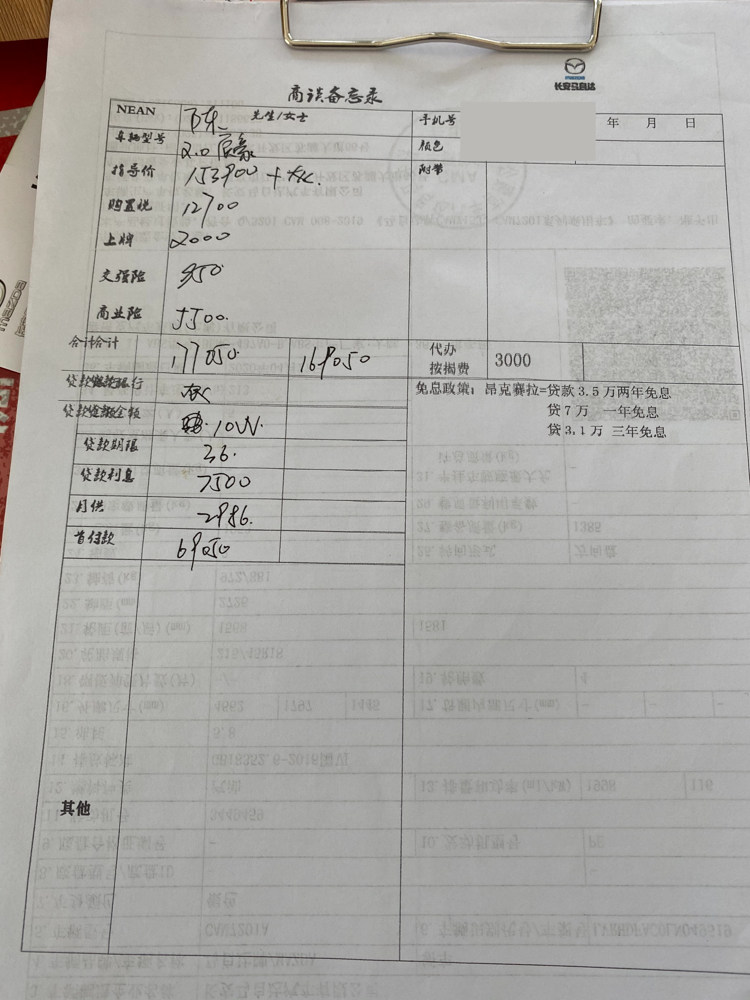 mazda
长安马自达
商谈备忘录
NEAN 陈 先生/女士 手机号 年 月 日
车辆型号 2.0 质豪 颜色
指导价 153900 + 附带
购置税 12700
上牌 2000
交强险 950
商业险 5500.
合计合计 177050. 169050 代办按揭费 3000
免息政策：昂克赛拉=贷款 3.5 万两年免息
贷 7 万 一年免息
贷 3.1 万 三年免息
贷款银行
贷款金额 10W.
贷款期限 36.
贷款利息 7500
月供 2986.
首付款 69050
其他